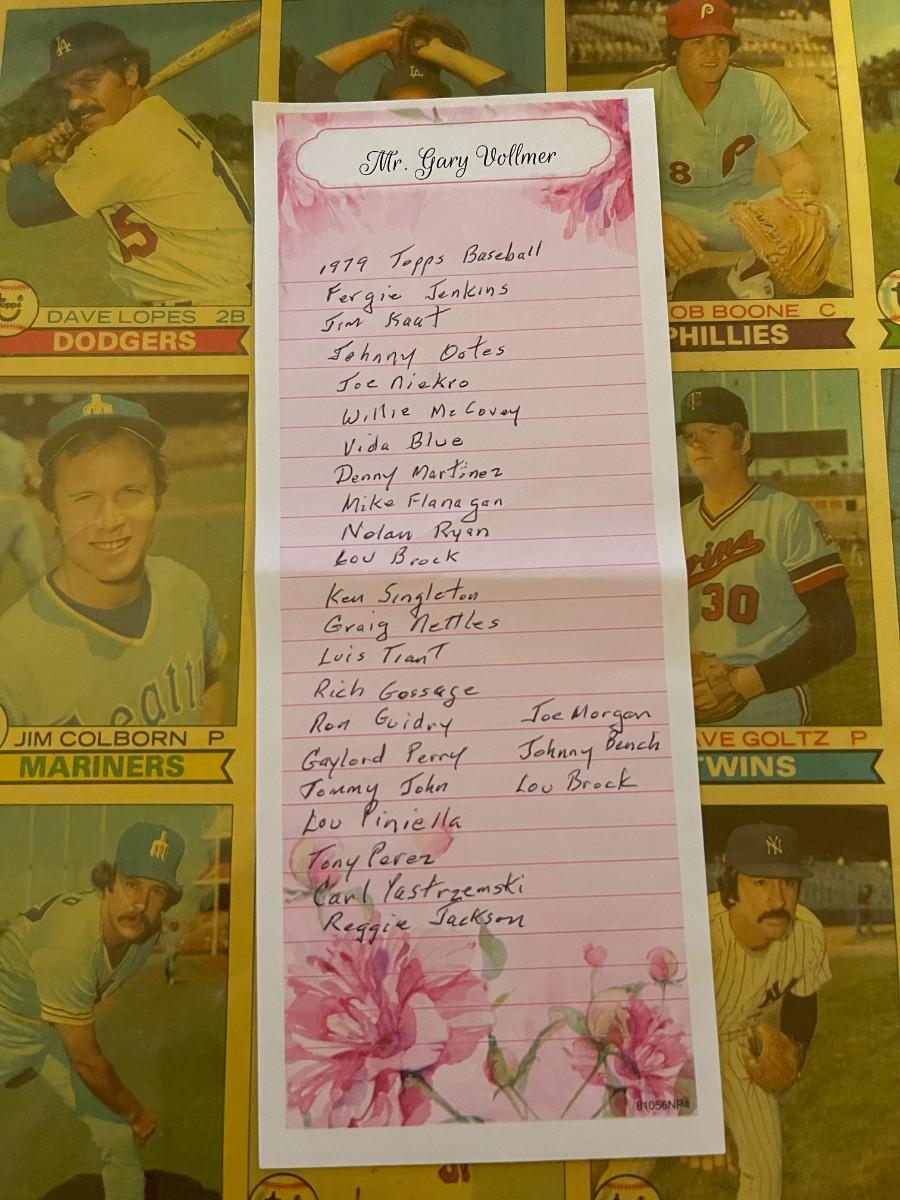 LA
LA
P
8
5
Topps
DAVE LOPES 2B
DODGERS
OB BOONE C
PHILLIES
Mr. Gary Vollmer
1979 Topps Baseball
Fergie Jenkins
Jim Kaat
Johnny Oates
Joe Niekro
Willie McCovey
Vida Blue
Denny Martinez
Mike Flanagan
Nolan Ryan
Lou Brock
Ken Singleton
Graig Nettles
Luis Tiant
Rich Gossage
Ron Guidry Joe Morgan
Gaylord Perry Johnny Bench
Tommy John Lou Brock
Lou Piniella
Tony Perez
Carl Yastrzemski
Reggie Jackson
81056NP4
eattl
JIM COLBORN P
MARINERS
wins
30
AVE GOLTZ P
TWINS
NY